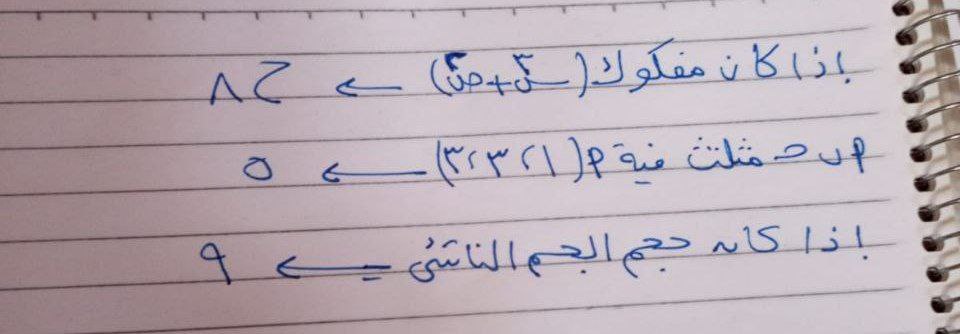 اذا كان مفكوك (س٣+ص٢) ← ح٨
م ب حـ مثلث فية م(١،٣،٣) ← ٥
اذا كان حجم الجسم الناتئ = ← ٩